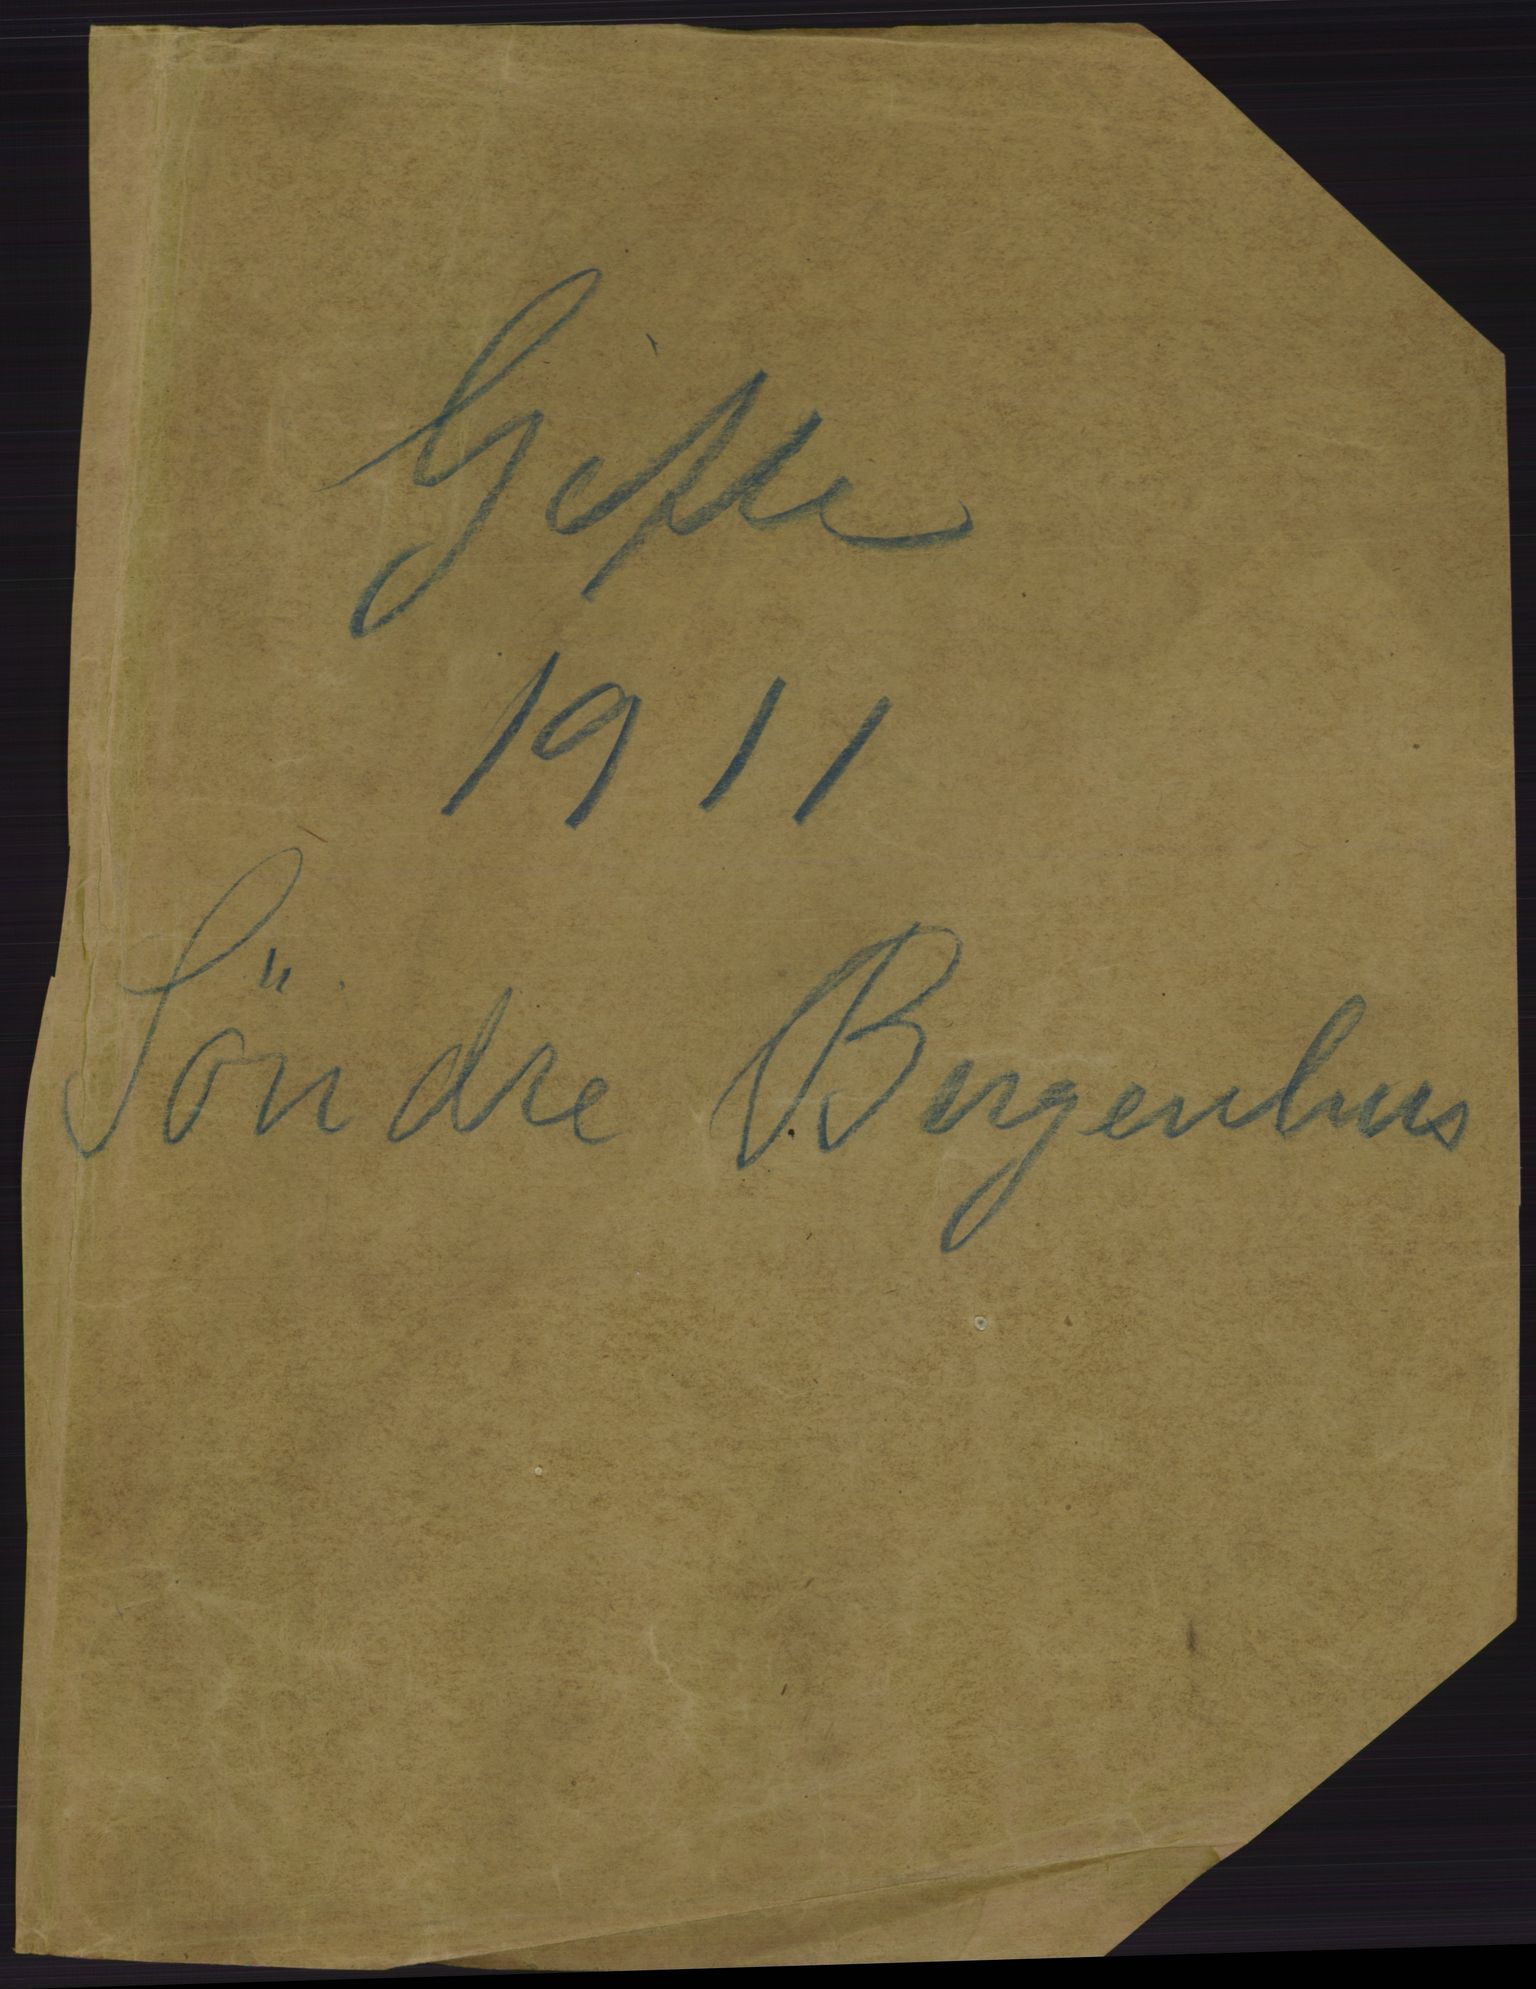 Gifte
1911
Söndre Bergenhus